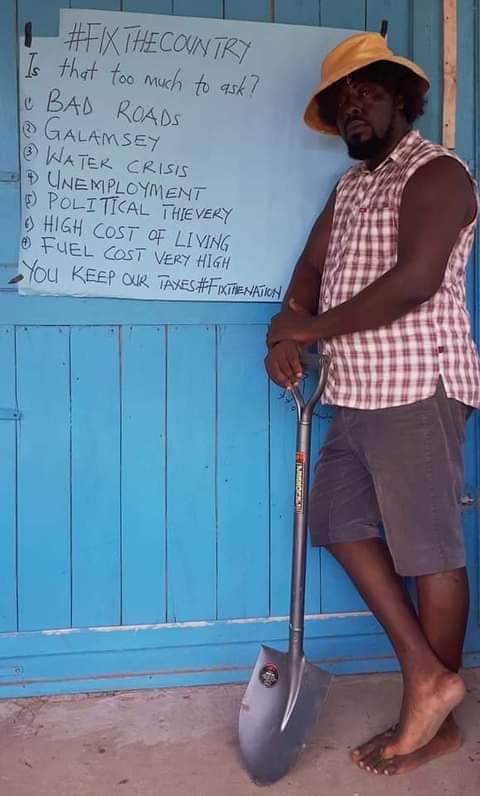 #FIXTHECOUNTRY
Is that too much to ask?
① BAD ROADS
② GALAMSEY
③ WATER CRISIS
④ UNEMPLOYMENT
⑤ POLITICAL THIEVERY
⑥ HIGH COST OF LIVING
⑦ FUEL COST VERY HIGH
YOU KEEP OUR TAXES#FIXTHENATION